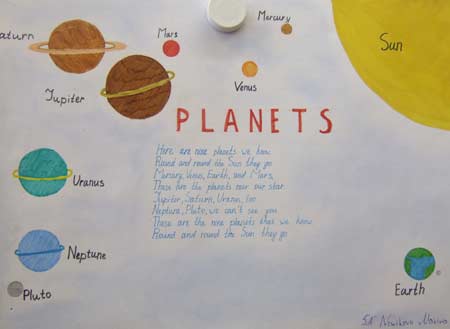 Saturn
Mars
Mercury
Sun
Jupiter
Venus
PLANETS
Here are nine planets we know
Round and round the Sun they go
Mercury, Venus, Earth, and Mars,
These are the planets near our star
Jupiter, Saturn, Uranus, too
Neptune, Pluto, we can't see you
These are the nine planets that we know
Round and round the Sun they go
Uranus
Neptune
Pluto
Earth